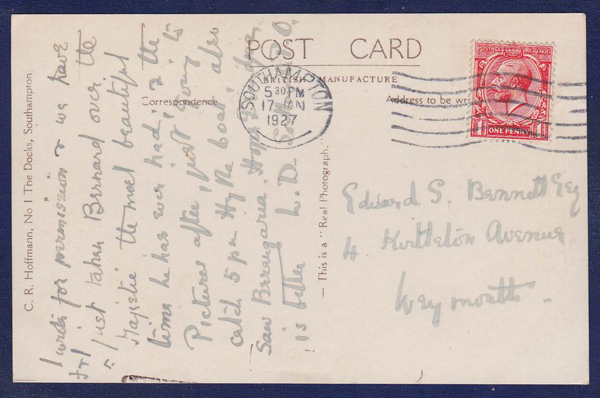 POST CARD
BRITISH MANUFACTURE
Correspondence
Address to be
SOUTHAMPTON
5 30 PM
17 JAN
1927
POSTAGE REVENUE
ONE PENNY
C. R. Hoffmann, No 1 The Docks, Southampton
— This is a "Real Photograph."
I write for permission & we have
just taken Bernard over the
Majestic the most beautiful
time he has ever had, & the
Pictures after, just going to
catch 5 pm Hythe boat, also
saw Berengaria. Hope
is better W.D.
Edward S. Bennett Esq
4. Avenue
Weymouth.